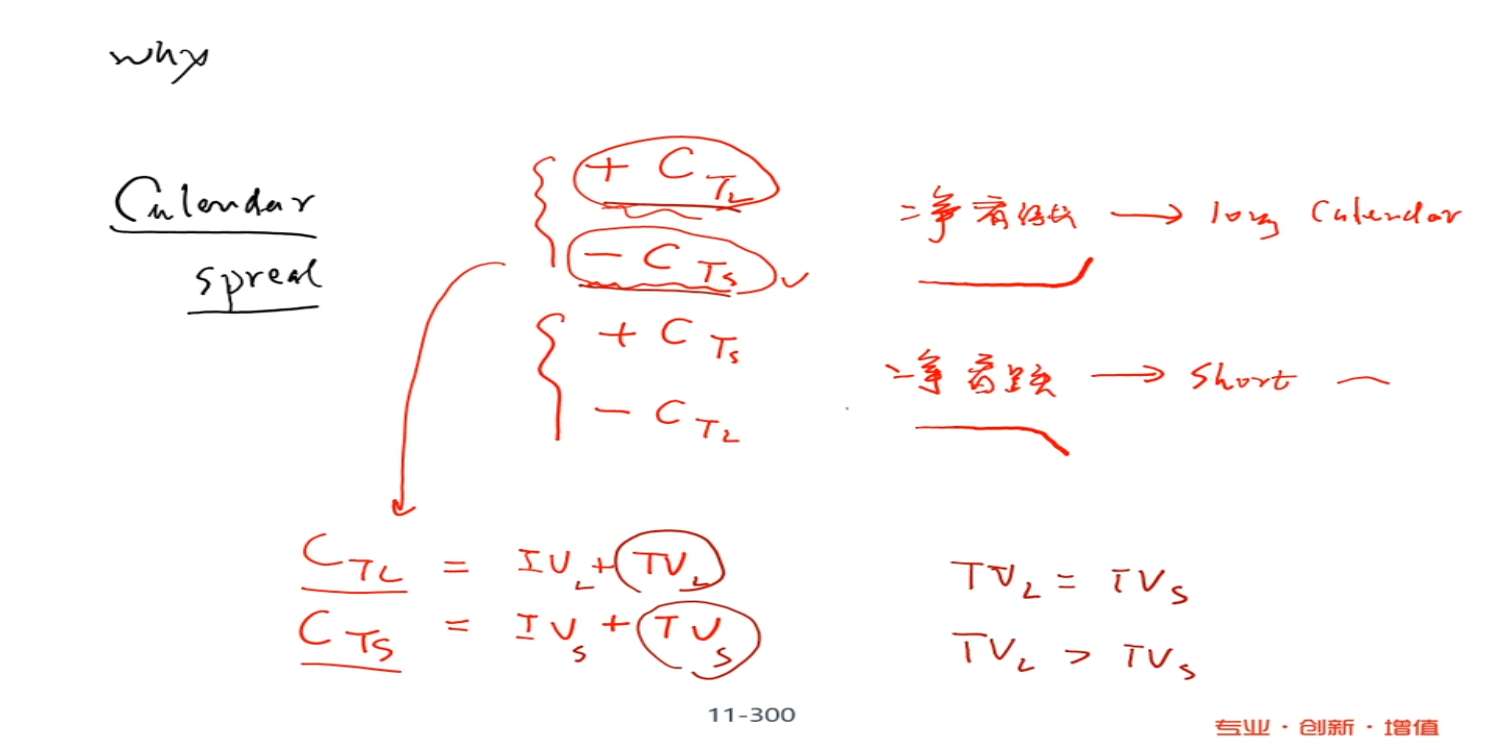 why
Calendar
spread
+ C TL
- C TS
=净看时长 → long Calendar
+ C TS
- C TL
=净 → short
C TL = IV L + TV L
C TS = IV S + TV S
TV L = TV S
TV L > TV S
11-300
专业·创新·增值